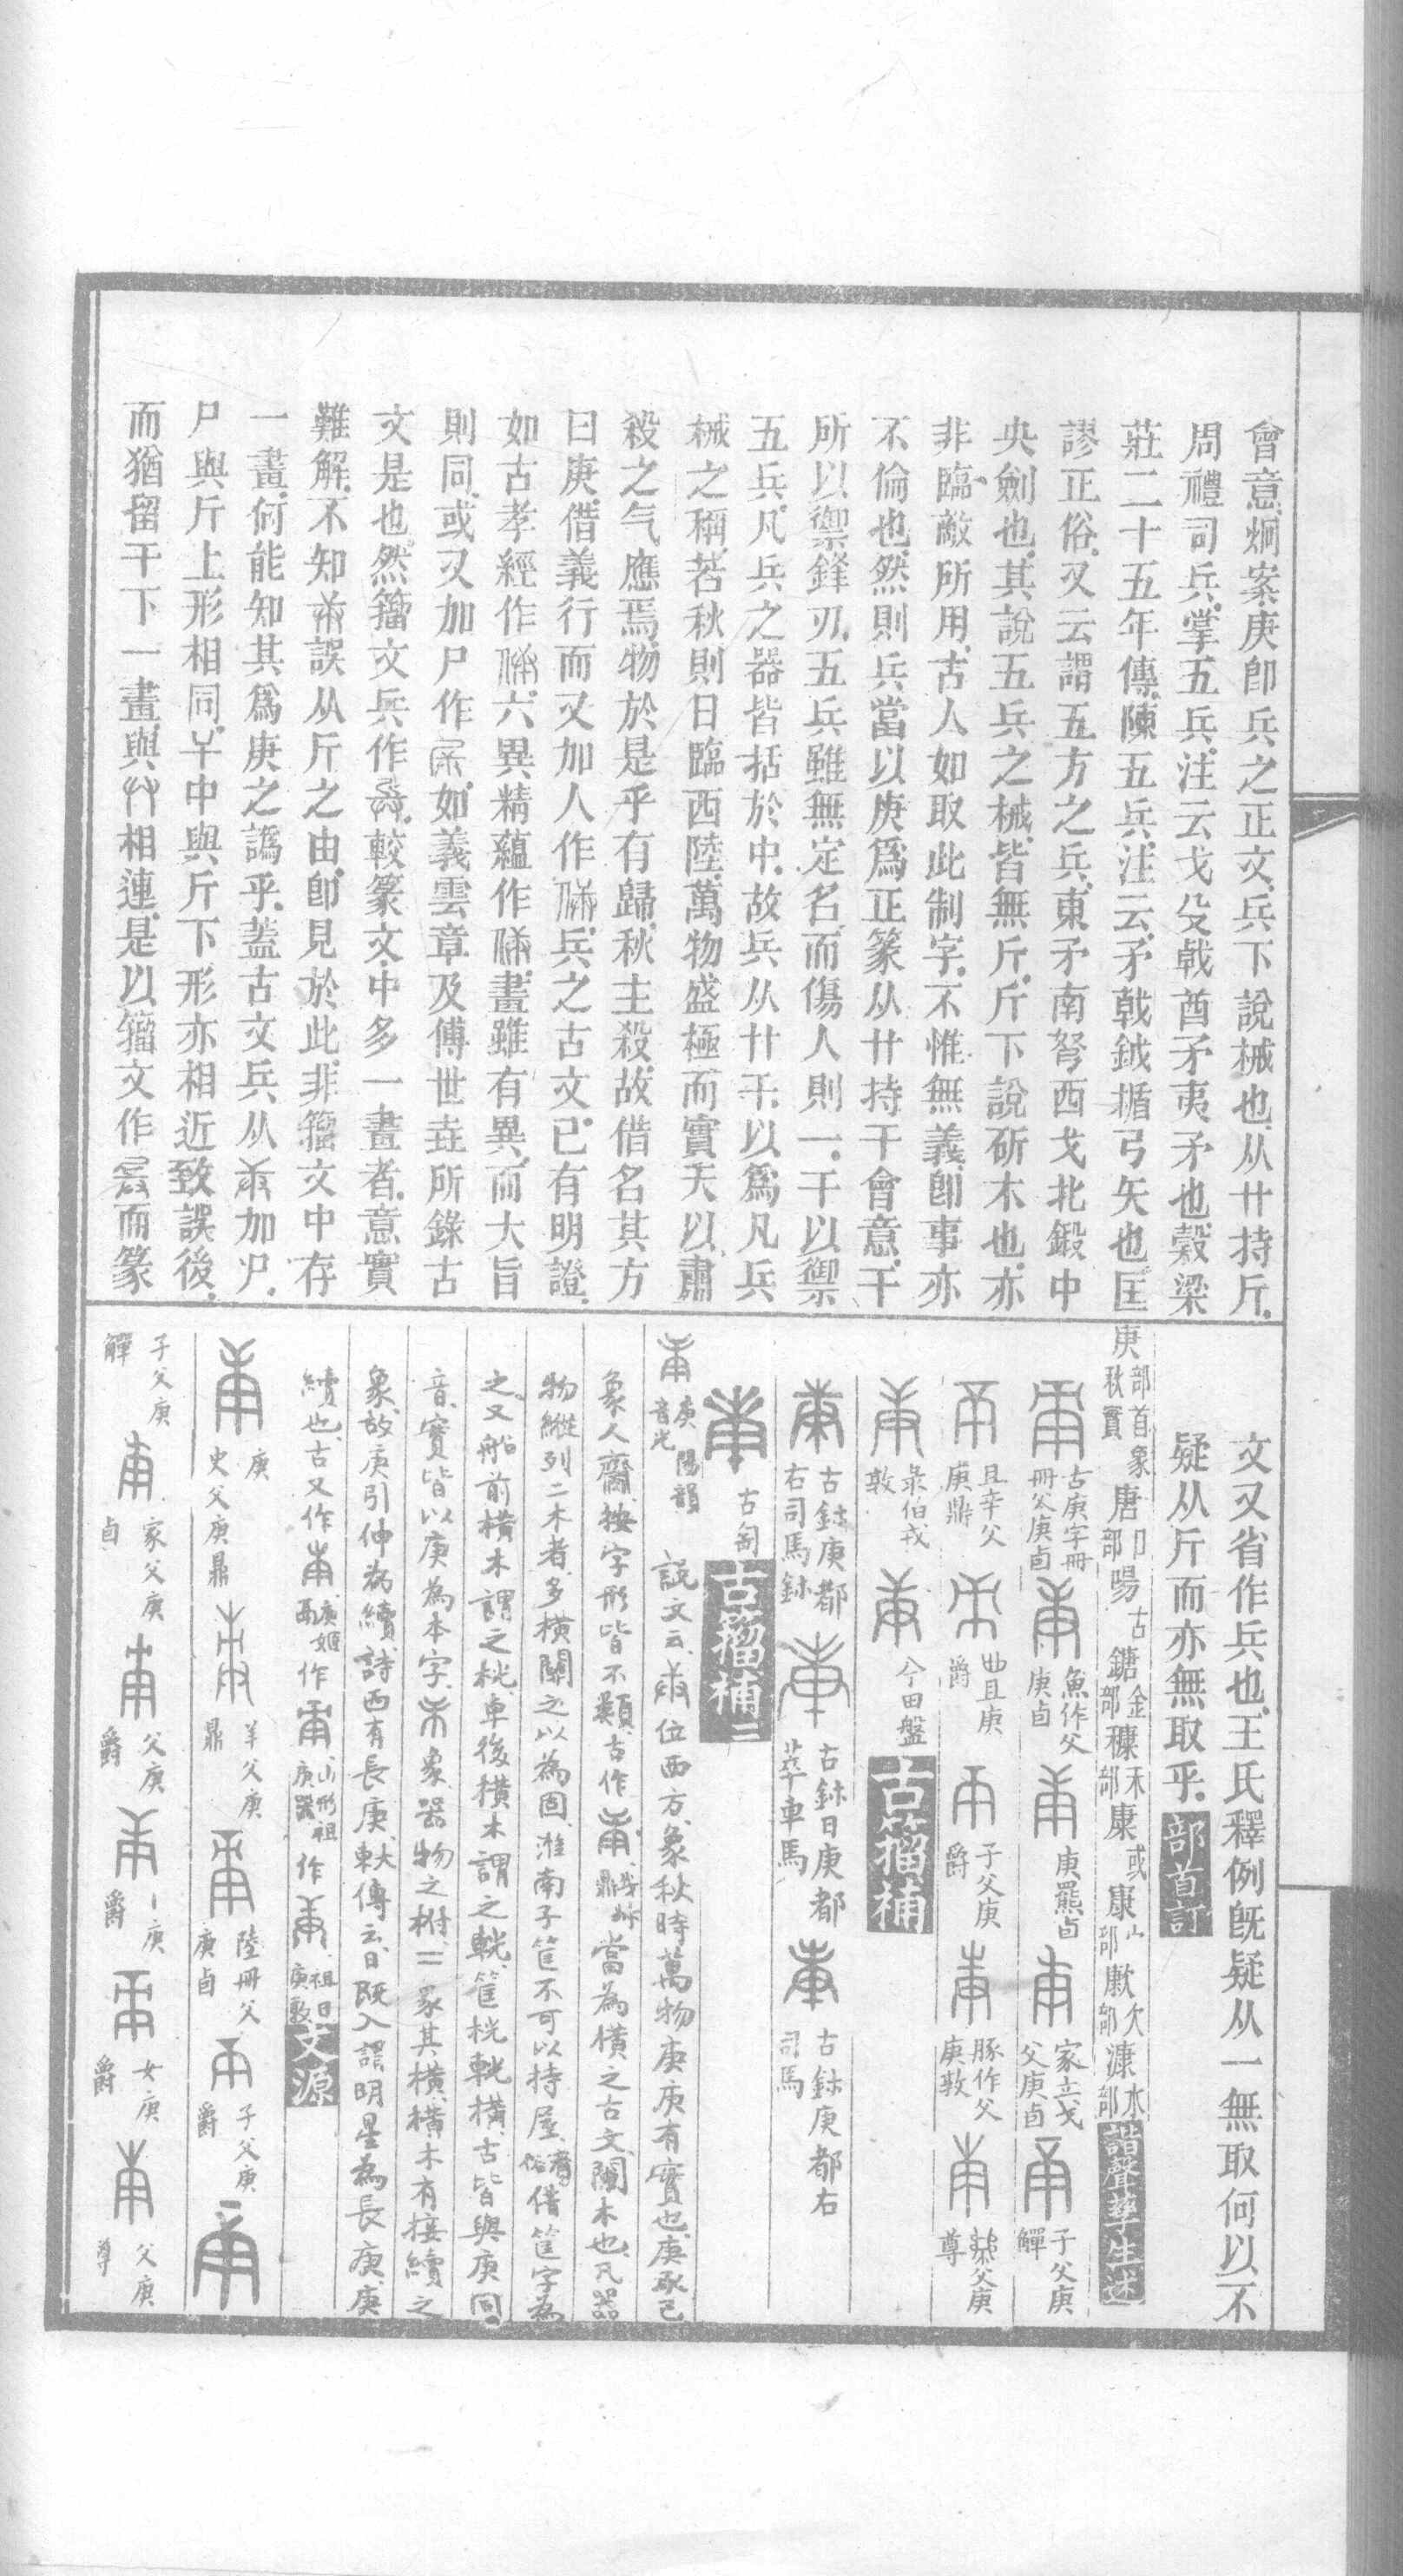 會意炯案庚卽兵之正文兵下說械也从廾持斤
周禮司兵掌五兵注云戈殳戟酋矛夷矛也穀梁
莊二十五年傳陳五兵注云矛戟鉞楯弓矢也匡
謬正俗又云謂五方之兵東矛南弩西戈北鍛中
央劍也其說五兵之械皆無斤斤下說斫木也亦
非臨敵所用古人如取此制字不惟無義卽事亦
不倫也然則兵當以庚爲正篆从廾持干會意干
所以禦鋒刃五兵雖無定名而傷人則一干以禦
五兵凡兵之器皆括於中故兵从廾干以爲凡兵
械之稱若秋則日臨西陸萬物盛極而實天以肅
殺之气應焉物於是乎有歸秋主殺故借名其方
曰庚借義行而又加人作兵之古文已有明證
如古孝經作六異精蘊作畫雖有異而大旨
則同或又加尸作如義雲章及傅世垚所錄古
文是也然籀文兵作較篆文中多一畫者意實
難解不知誤从斤之由卽見於此非籀文中存
一畫何能知其爲庚之譌乎蓋古文兵从加尸
尸與斤上形相同中與斤下形亦相近致誤後
而猶留干下一畫與相連是以籀文作而篆
文又省作兵也王氏釋例旣疑从一無取何以不
疑从斤而亦無取乎部首訂
庚部首象秋實唐口部陽古鏜金部穅禾部康或康宀部歑欠部漮水部諧聲孳生述
古庚字冊冊父庚卣魚作父庚卣庚羆卣家立戈父庚卣子父庚觶
且辛父庚鼎且庚爵子父庚爵豚作父庚敦父庚尊
彔伯戎敦兮田盤古籀補
古鉢庚都右司馬鉢古鉢日庚都萃車馬古鉢庚都右司馬
古匋古籀補二
庚陽韻音光說文云位西方象秋時萬物庚庚有實也庚承己
象人齎按字形皆不類古作當為橫之古文闌木也凡器
物縱列二木者多橫關之以為固淮南子筐不可以持屋借筐字為
之又船前橫木謂之桄車後橫木謂之輄筐桄輄橫古皆與庚同
音實皆以庚為本字象器物之柎二象其橫橫木有接續之
象故庚引伸為續詩西有長庚大傳云日既入謂明星為長庚庚
續也古又作庚姬鬲作山形祖庚器作祖日庚敦文源
庚史父庚鼎羊父庚鼎陸冊父庚卣子父庚爵
子父庚觶家父庚卣父庚爵庚爵女庚爵父庚尊